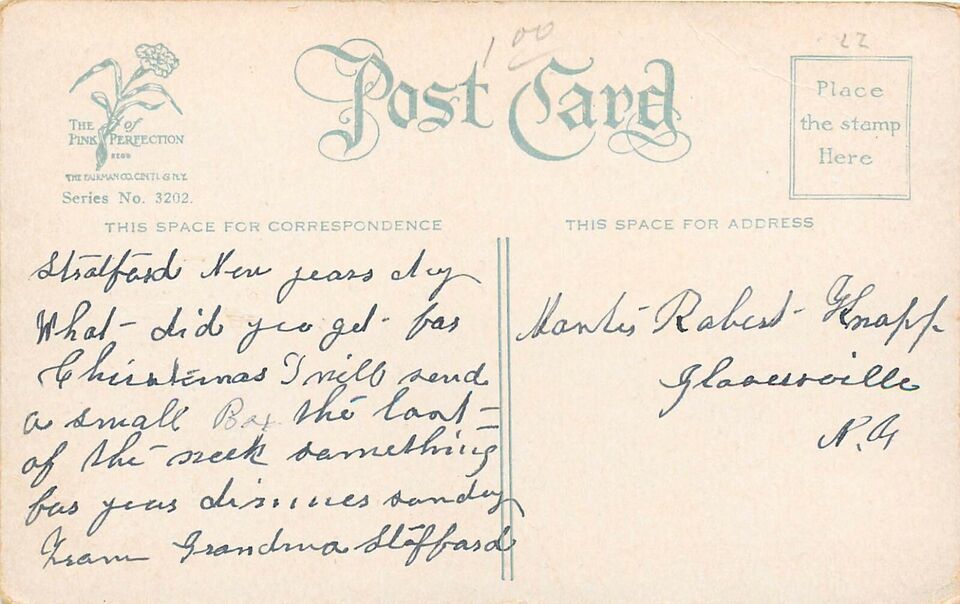 1 00
22
Post Card
THE of
PINK PERFECTION
REGD
THE FAIRMAN CO. CINTI. & N.Y.
Series No. 3202.
Place
the stamp
Here
THIS SPACE FOR CORRESPONDENCE
Stratford New years day
What did you get for
Christmas I will send
a small Box the last
of the week something
for your dinnes sunday
From Grandma Stafford
THIS SPACE FOR ADDRESS
Robert Knapp
Gloversville
N.Y